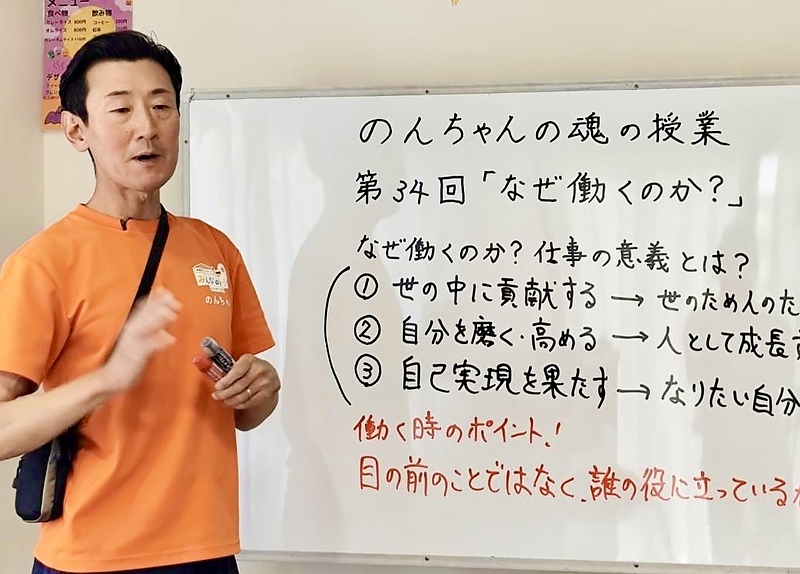 メニュー
食べ物 飲み物
カレーライス 800円 コーヒー
オムライス 800円 紅茶
デザ
みんなの
のんちゃ
のんちゃんの魂の授業
第34回「なぜ働くのか?」
なぜ働くのか?仕事の意義とは?
① 世の中に貢献する → 世のため人のた
② 自分を磨く・高める → 人として成長す
③ 自己実現を果たす → なりたい自分
働く時のポイント!
目の前のことではなく、誰の役に立っているか